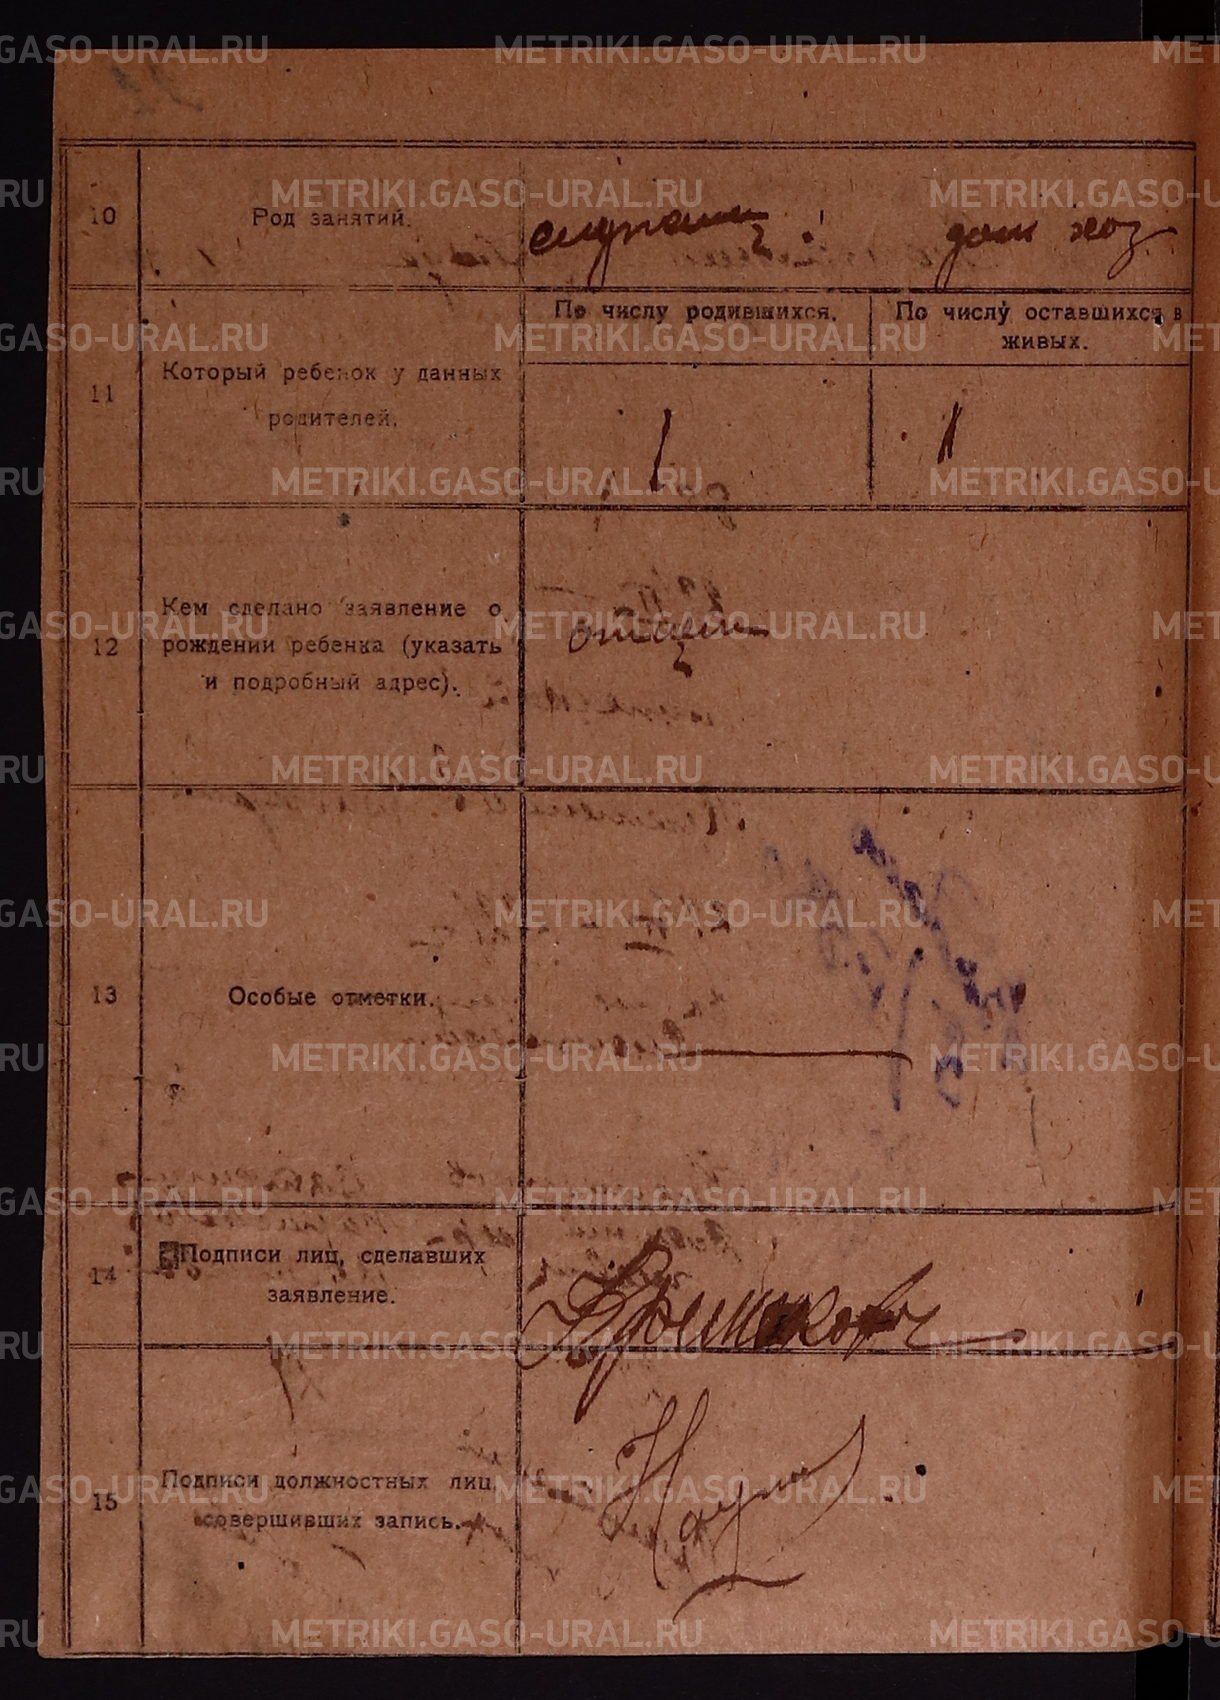 METRIKI.GASO-URAL.RU
10
Род занятий.
дом хоз
11
Который ребенок у данных
родителей.
По числу родившихся.
По числу оставшихся в
живых.
1
1
12
Кем сделано заявление о
рождении ребенка (указать
и подробный адрес).
отцем
13
Особые отметки.
14
Подписи лиц, сделавших
заявление.
15
Подписи должностных лиц,
совершивших запись.